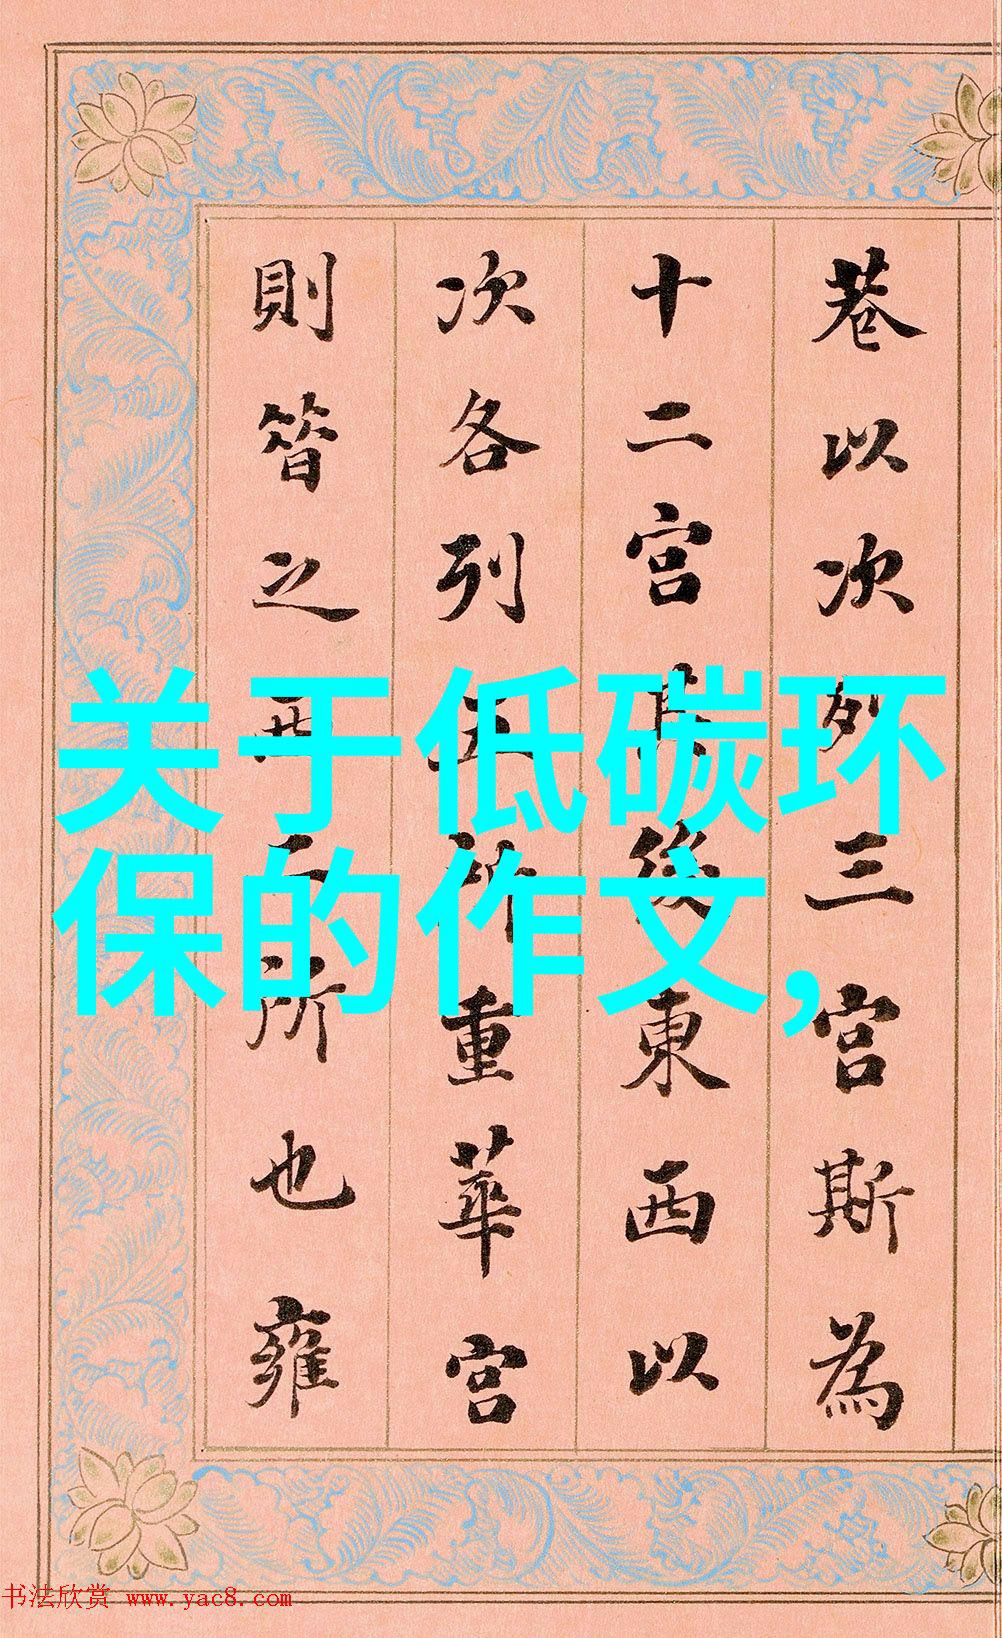 巷以次列三宫斯為
十二宫後東西以
次各列五所重華宫
則昔之西二所也雍
关于低碳环
保的作文,
书法欣赏 www.yac8.com